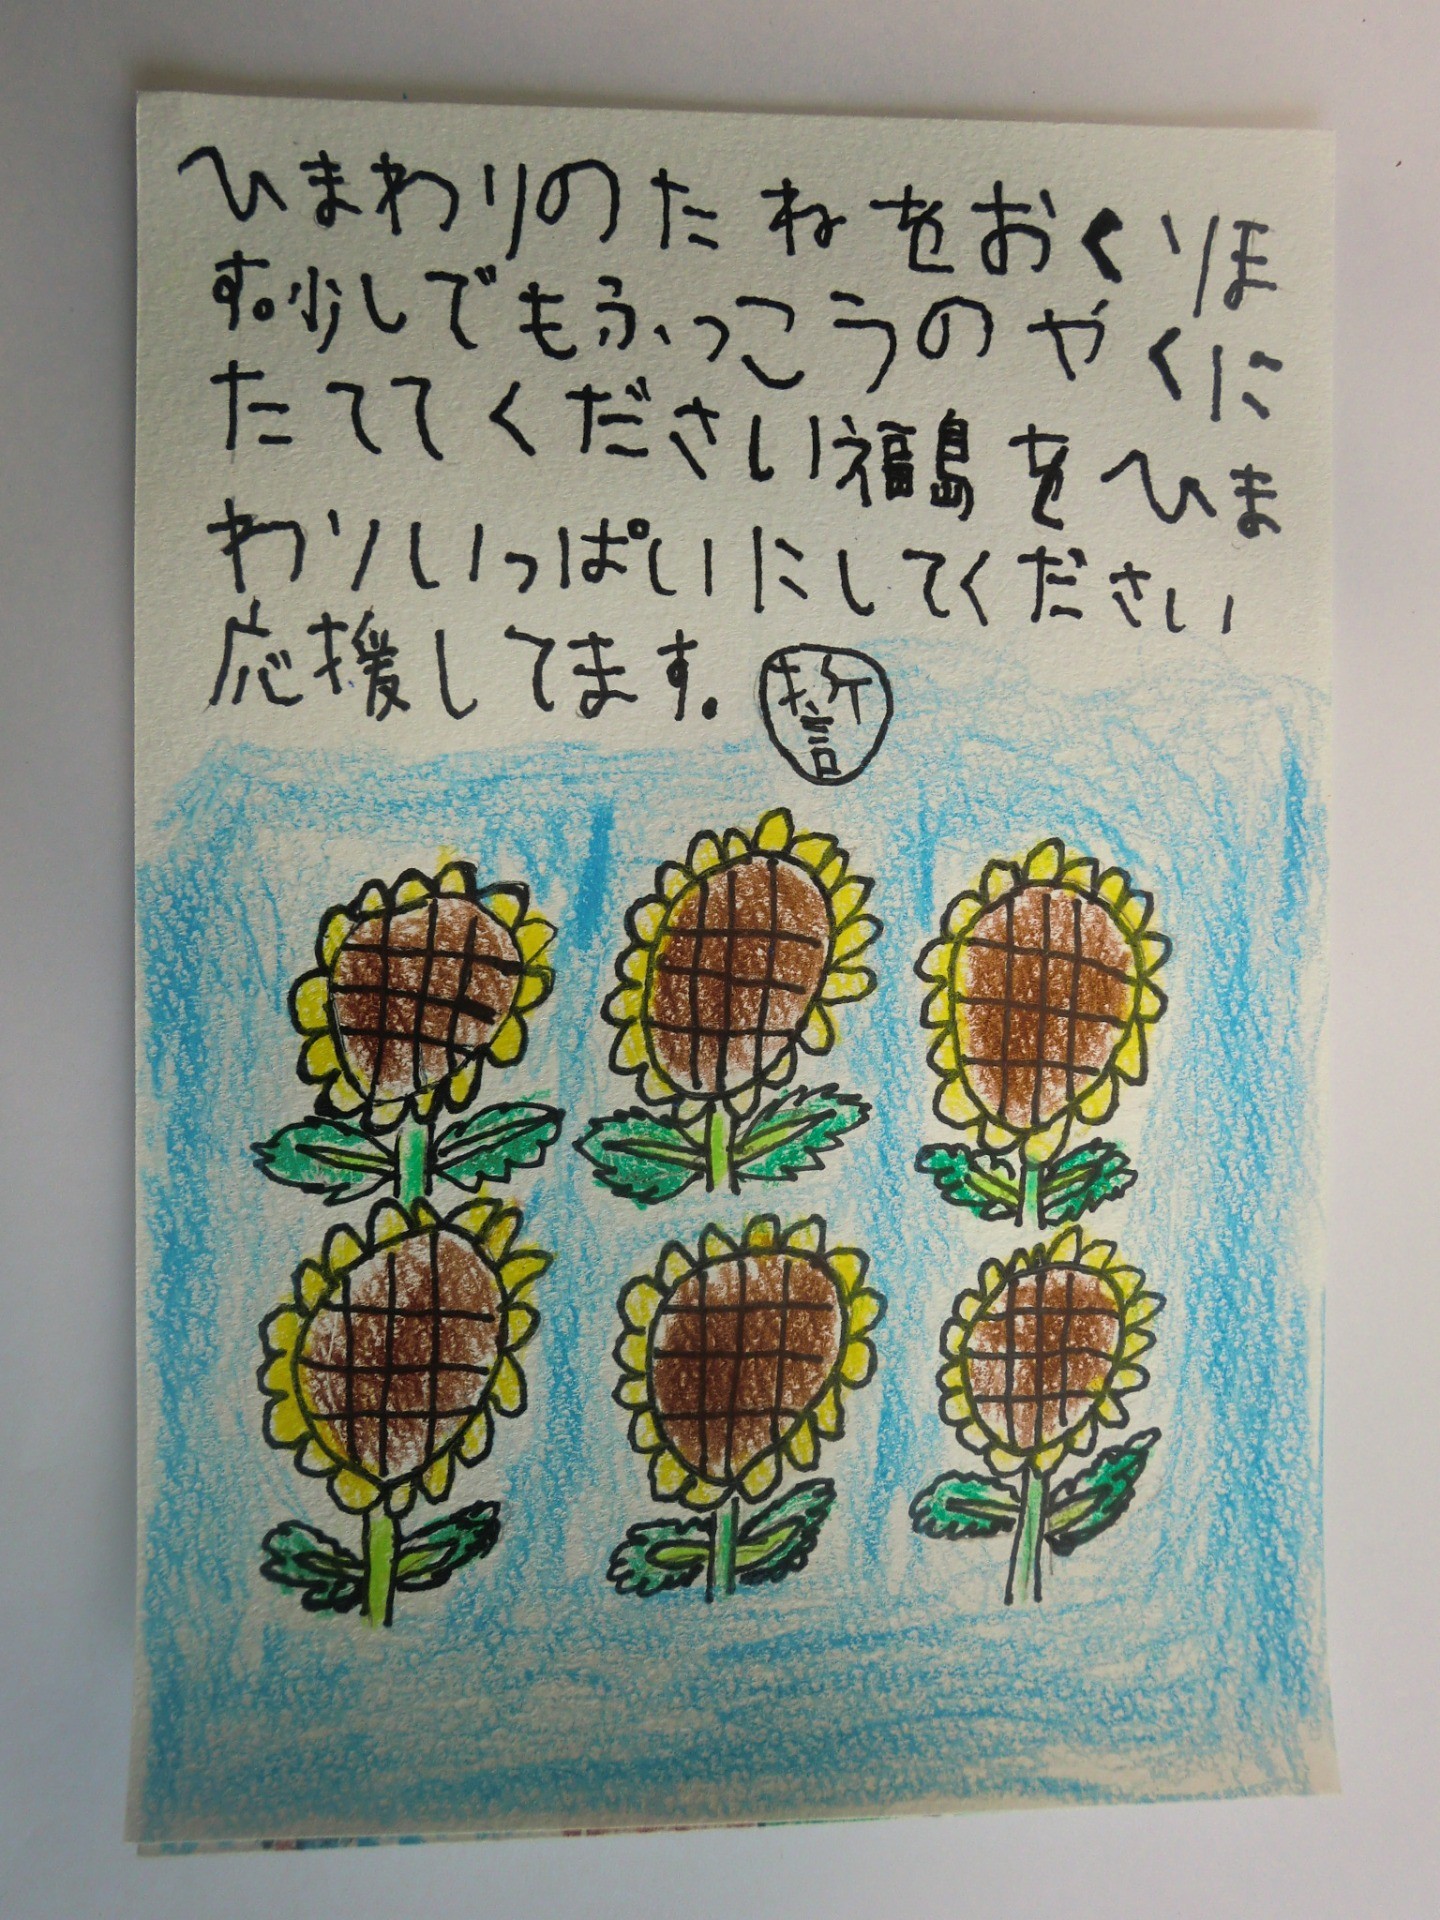 ひまわりのたねをおくりま
す。少しでもふっこうのやくに
たててください福島をひま
わりいっぱいにしてください
応援してます。哲